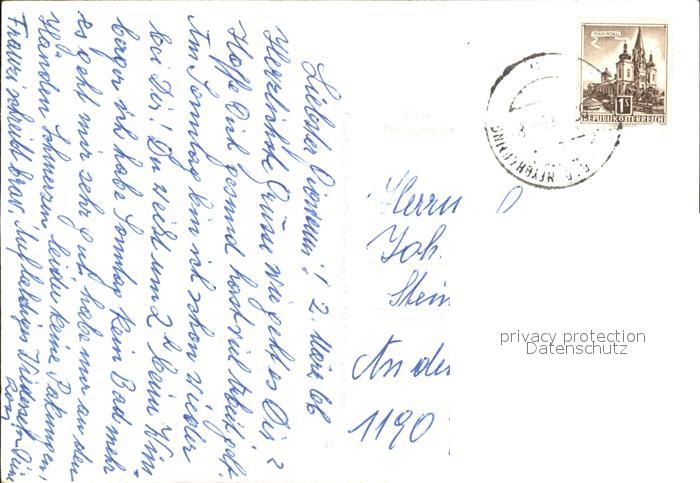 Liebster Brommi! 2. März 66
Herzliche Grüsse wie geht es Dir?
Hoffe Dich gesund hast viel Arbeit gelt.
Am Sonntag bin ich schon wieder
bei Dir. Du weißt um 2h beim Wim
berger ich habe Sonntag kein Bad mehr
es geht mir sehr gut habe nur an den
Händen Schmerzen leider keine Pakungen,
Franzi schreibt brav. Auf baldiges Wiedersehn Dein
Herrn
Joh.
Stein
An de
1190
Echte
Photographie
MARIAZELL
1S
REPUBLIK ÖSTERREICH
privacy protection
Datenschutz